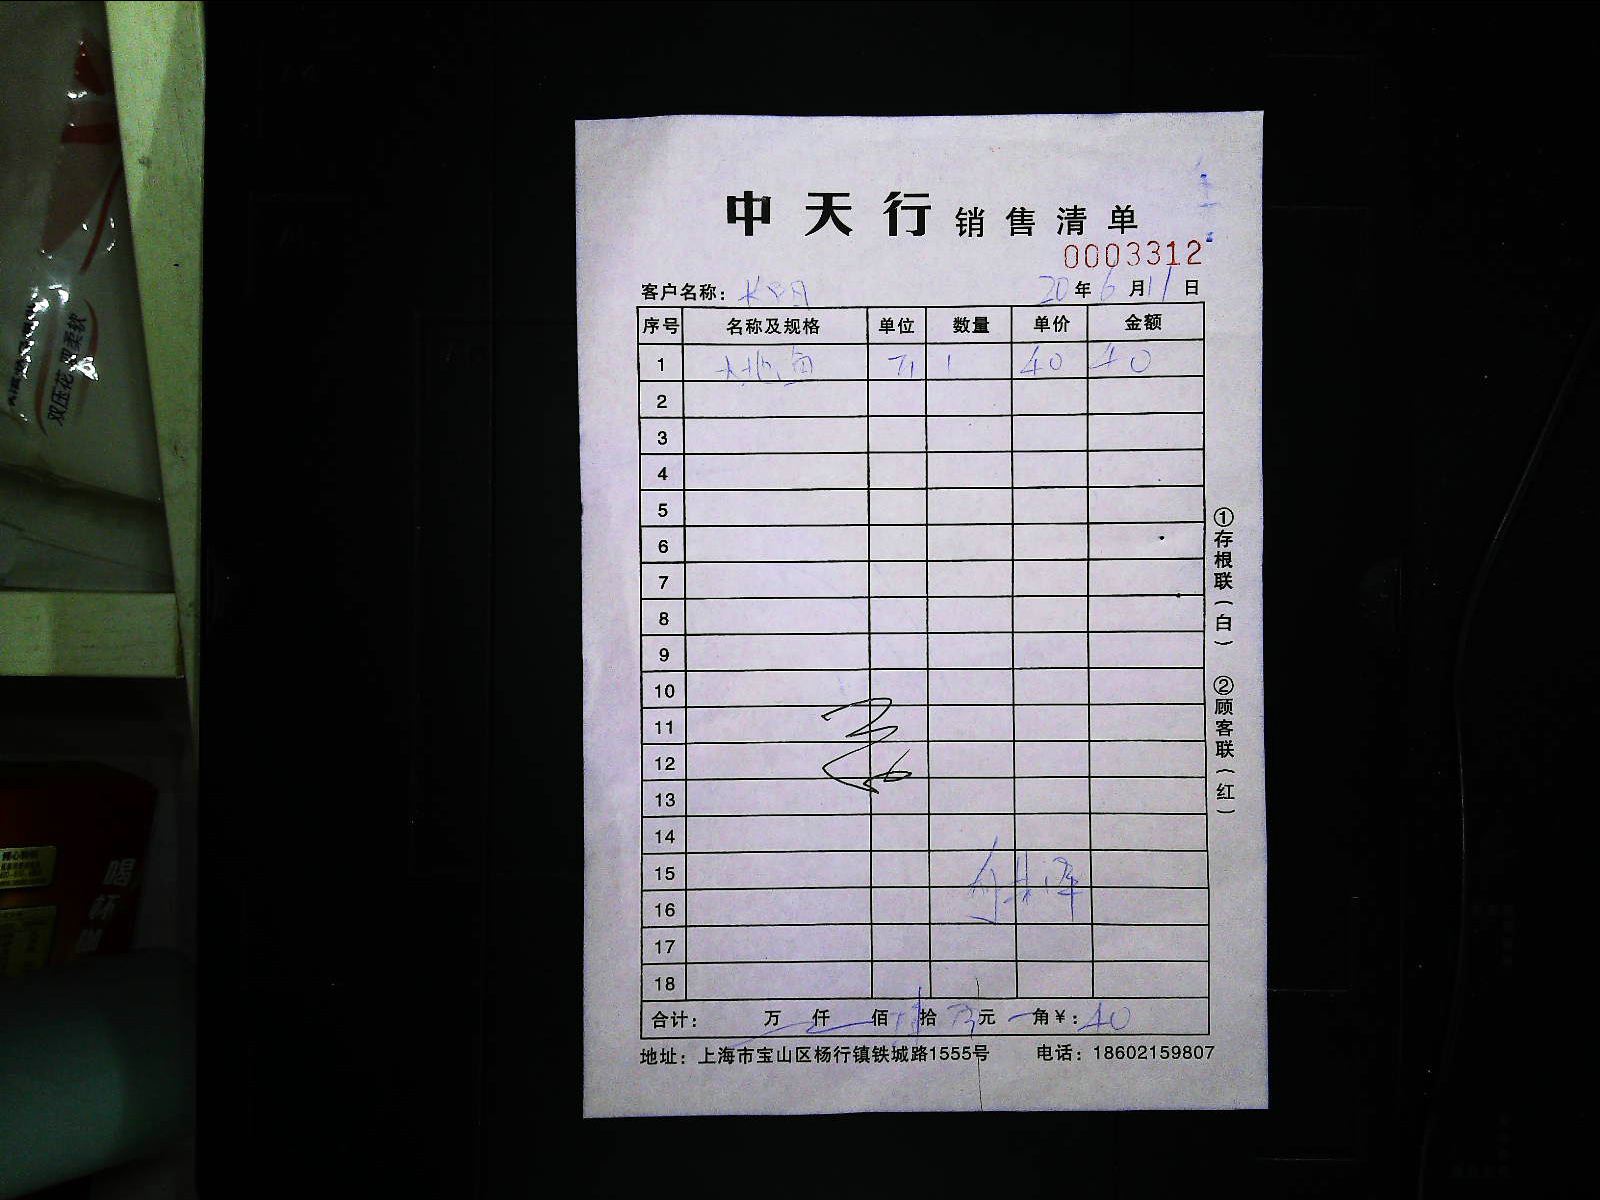 中天行 销售清单
0003312
客户名称： 20年6月11日
序号 名称及规格 单位 数量 单价 金额
1 1 40 40
2
3
4
5
6
7
8
9
10
11
12
13
14
15
16
17
18
合计： 万 仟 佰 拾 元 角￥：40
地址：上海市宝山区杨行镇铁城路1555号 电话：18602159807
①存根联（白） ②顾客联（红）
双压花 更柔软
喝杯咖